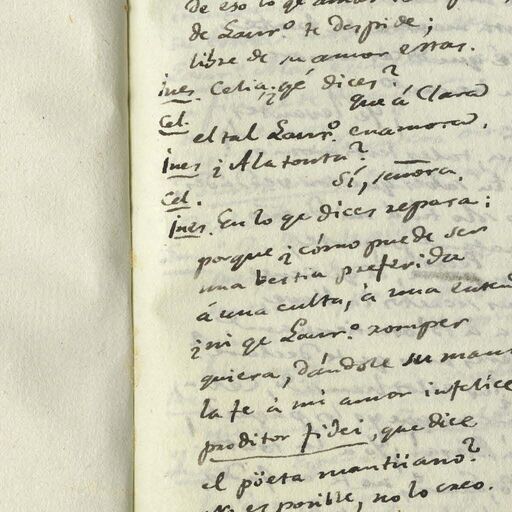 de eso lo qe
de Laurº te despide;
libre de su amor estas.
Ines. Celia, ¿qé dices?
Cel. que á Clara
el tal Laurº enamora.
Ines ¿A la tonta?
Cel. Sí, señora.
Ines. En lo qe dices repara;
porque ¿cómo puede ser
una bestia preferida
á una culta, á una
¿ni qe Laurº romper
quiera, dándole su mano
la fe á mi amor infelice
proditor fidei, que dice
el pöeta mantüano?
No es posible, no lo creo.